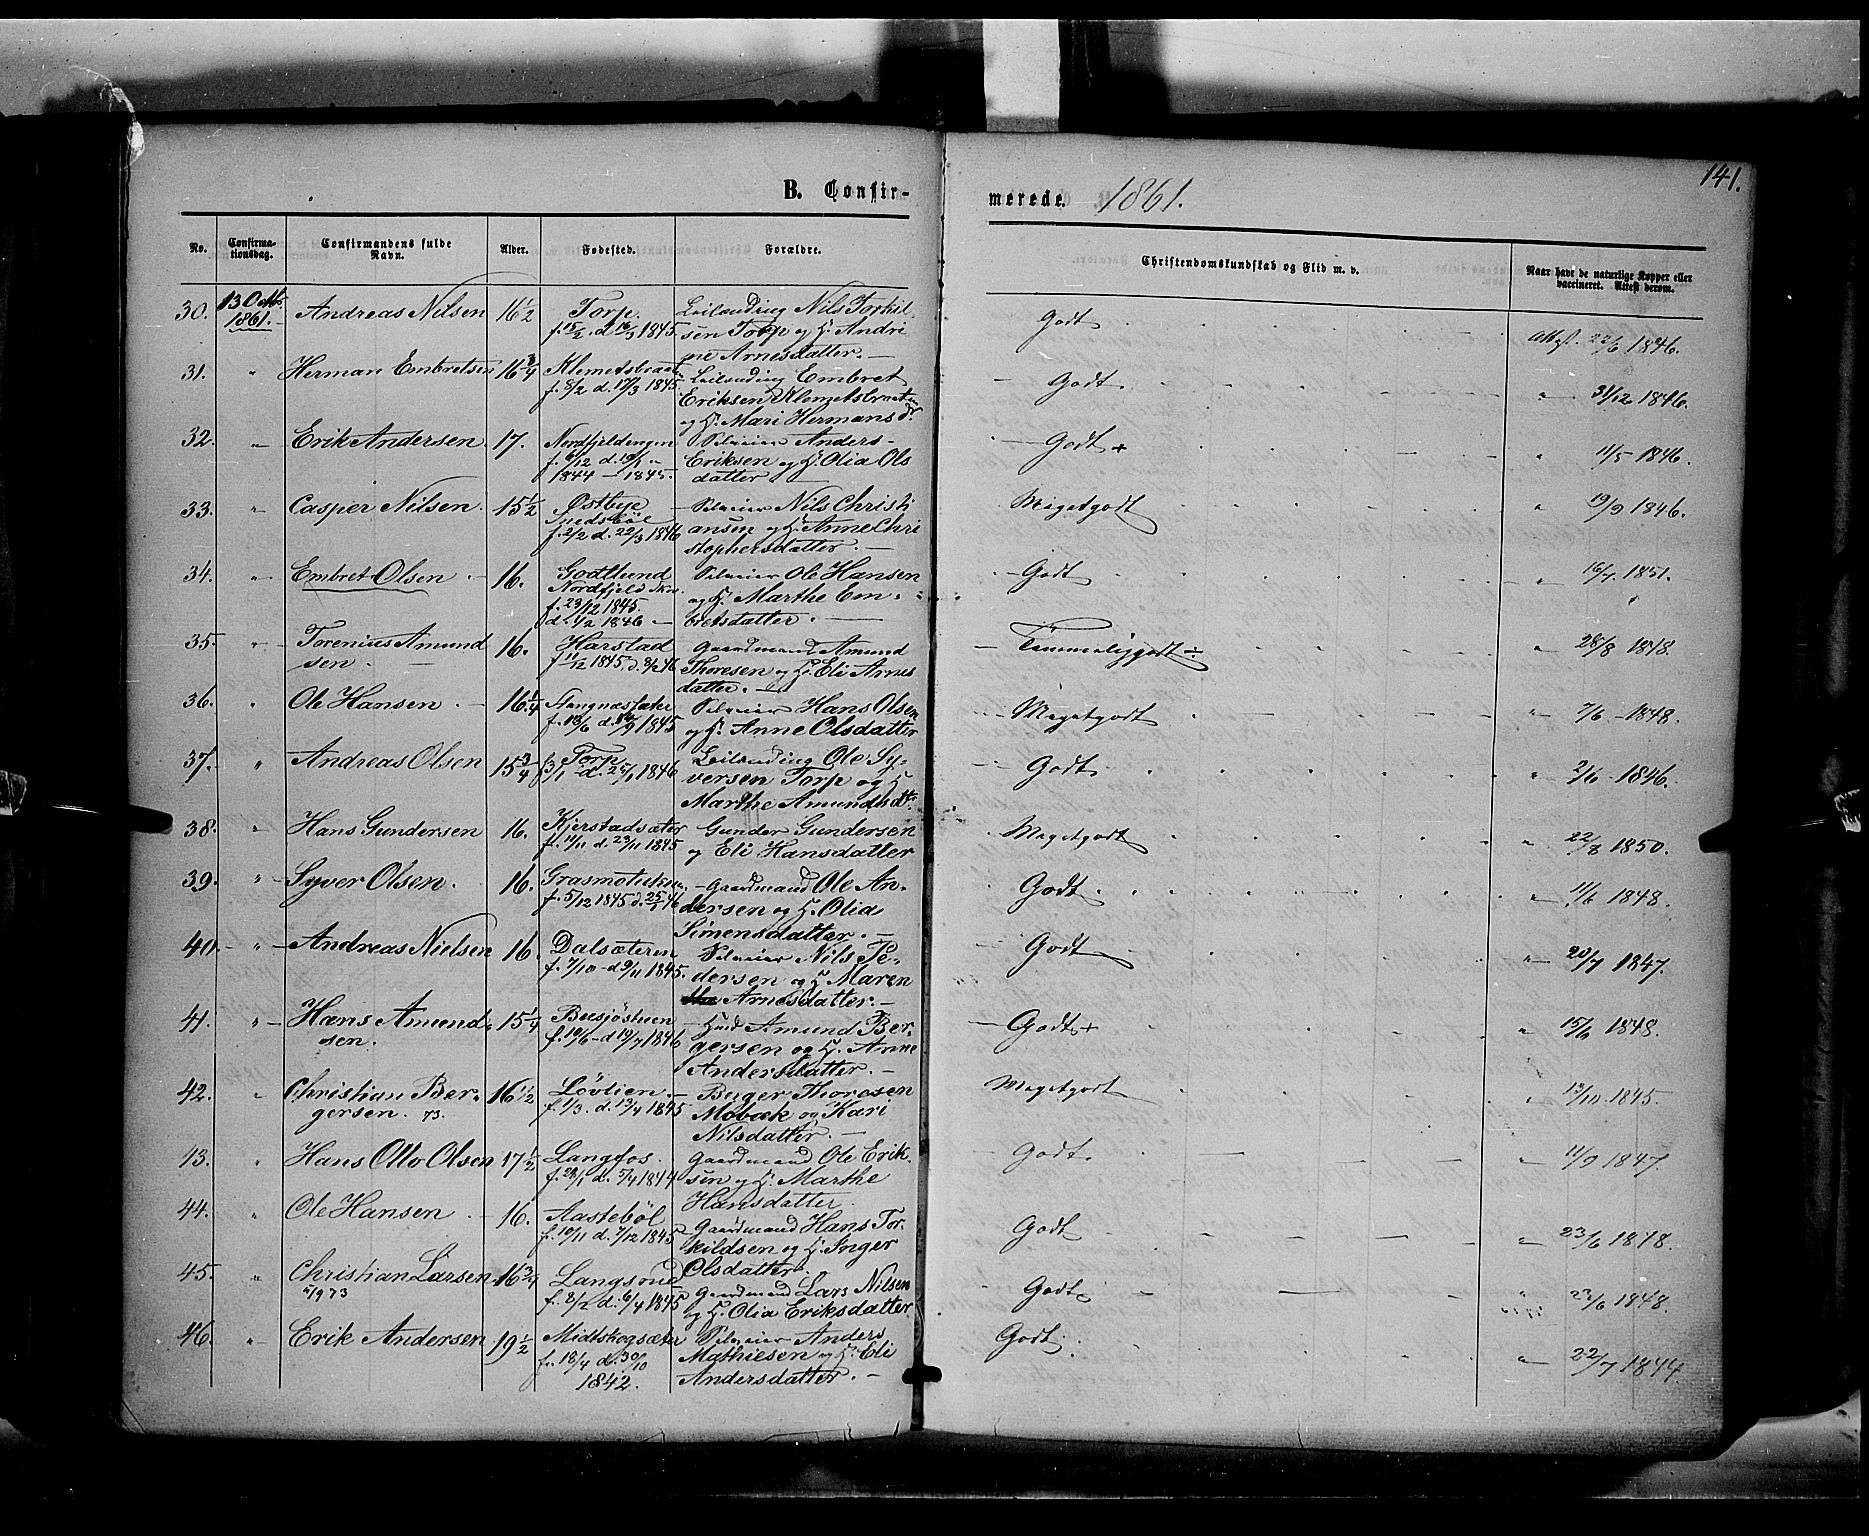 141.
B. Confir-
merede. 1861.
No. Confirma-tionsdag. Confirmandens fulde Navn. Alder. Fødested. Forældre. Christendomskundskab og Flid m. v. Naar havt de naturlige Kopper eller vaccineret. Attest derom.
30. 13 Octb. 1861. Andreas Nilsen 16 1/2 Torp. Leilænding Nils Torkil-
f. 15/2 d. 16/3 1845. sen Torp og H. Andri
ne Arnesdatter. — Godt Attest. 22/6 1846.
31. " Herman Embretsen 16 3/4 Klemetsbraaten Leilænding Embret
f. 8/2 d. 17/3 1845. Eriksen Klemetsbraaten
og H. Mari Hermansdr Godt. " 31/12 1846.
32. " Erik Andersen. 17. Nordfjeldengen Anders
f. 6/12 d. 19/1 Eriksen og H. Olia Ols
1844 — 1845. datter — Godt + " 11/5 1846.
33. " Casper Nilsen. 15 1/2 Østbye Nils Christi
f. 2/2 d. 22/3 1846 ansen og H. Anne Chri
stophersdatter. — Megetgodt " 19/9 1846.
34. " Embret Olsen 16. Godtlund Ole Hansen
Nordfjeld og H. Marthe Em-
f. 23/12 1845. betsdatter. —
d. 1/2 1846 — Godt " 16/7 1851.
35. " Torenius Amund 16. Harstad Gaardmand Amund
sen. — f. 11/12 1845 d. 8/2 46 Thoresen og H. Eli Arnes
datter. — Temmeliggodt ÷ " 28/8 1848.
36. " Ole Hansen 16 1/4 Stangnessæter Hans Olsen
f. 13/6 d. 14/9 1845 og H. Anne Olsdatter Megetgodt " 7/6 — 1848.
37. " Andreas Olsen 15 3/4 Torp Leilænding Ole Sy-
3/1 d. 25/1 1846 versen Torp og H.
Marthe Amundsdtr Godt. " 2/6 1846.
38. " Hans Gundersen 16. Kjerstadsæter Gunder Gundersen
f. 14/11 d. 23/11 1845 og Eli Hansdatter Megetgodt " 22/8 1850.
39. " Syver Olsen. 16. Gaardmand Ole An-
f. 5/12 1845 d. 25/1 46 dersen og H. Olia
Simensdatter. — Godt " 11/6 1848.
40. " Andreas Nielsen 16. Dalsæteren Nils Pe-
f. 7/10 — d. 9/11 1845. dersen og H. Maren
Arnesdatter. — Godt " 20/7 1847.
41. " Hans Amund 15 1/4 Busjøstuen Amund Ber-
sen. f. 10/6 — d. 19/7 1846 gersen og H. Anne
Andersdatter. — Godt + " 15/6 1848.
42. " Christian Ber- 16 1/2 Løvlien. Berger Thoresen
gersen. 73. f. 1/3. d. 13/4 1845 Mobæk og Kari
Nilsdatter. — Megetgodt " 13/10 1845.
13. " Hans Otto Olsen 17 1/2 Langfos. Gaardmand Ole Erik
f. 28/1 d. 5/4 1844 sen og H. Marthe
Hansdatter. Godt. " 11/9 1847.
44. " Ole Hansen 16. Aastebøl Gaardmand Hans Tor
f. 10/11 d. 7/12 1845 kildsen og H. Inger
Olsdatter. Godt " 23/6 1848.
45. " Christian Larsen 16 3/4 Langsrud Gaardmand Lars Nilsen
5/9 73 f. 8/2 d. 6/4 1845 og H. Olia Eriksdatter Godt " 23/6 1848.
46. " Erik Andersen 19 1/2 Midtskogsæter Anders
f. 18/4 d. 30/10 Mathiesen og H. Eli
1842. Andersdatter. — Godt. " 22/7 1844.